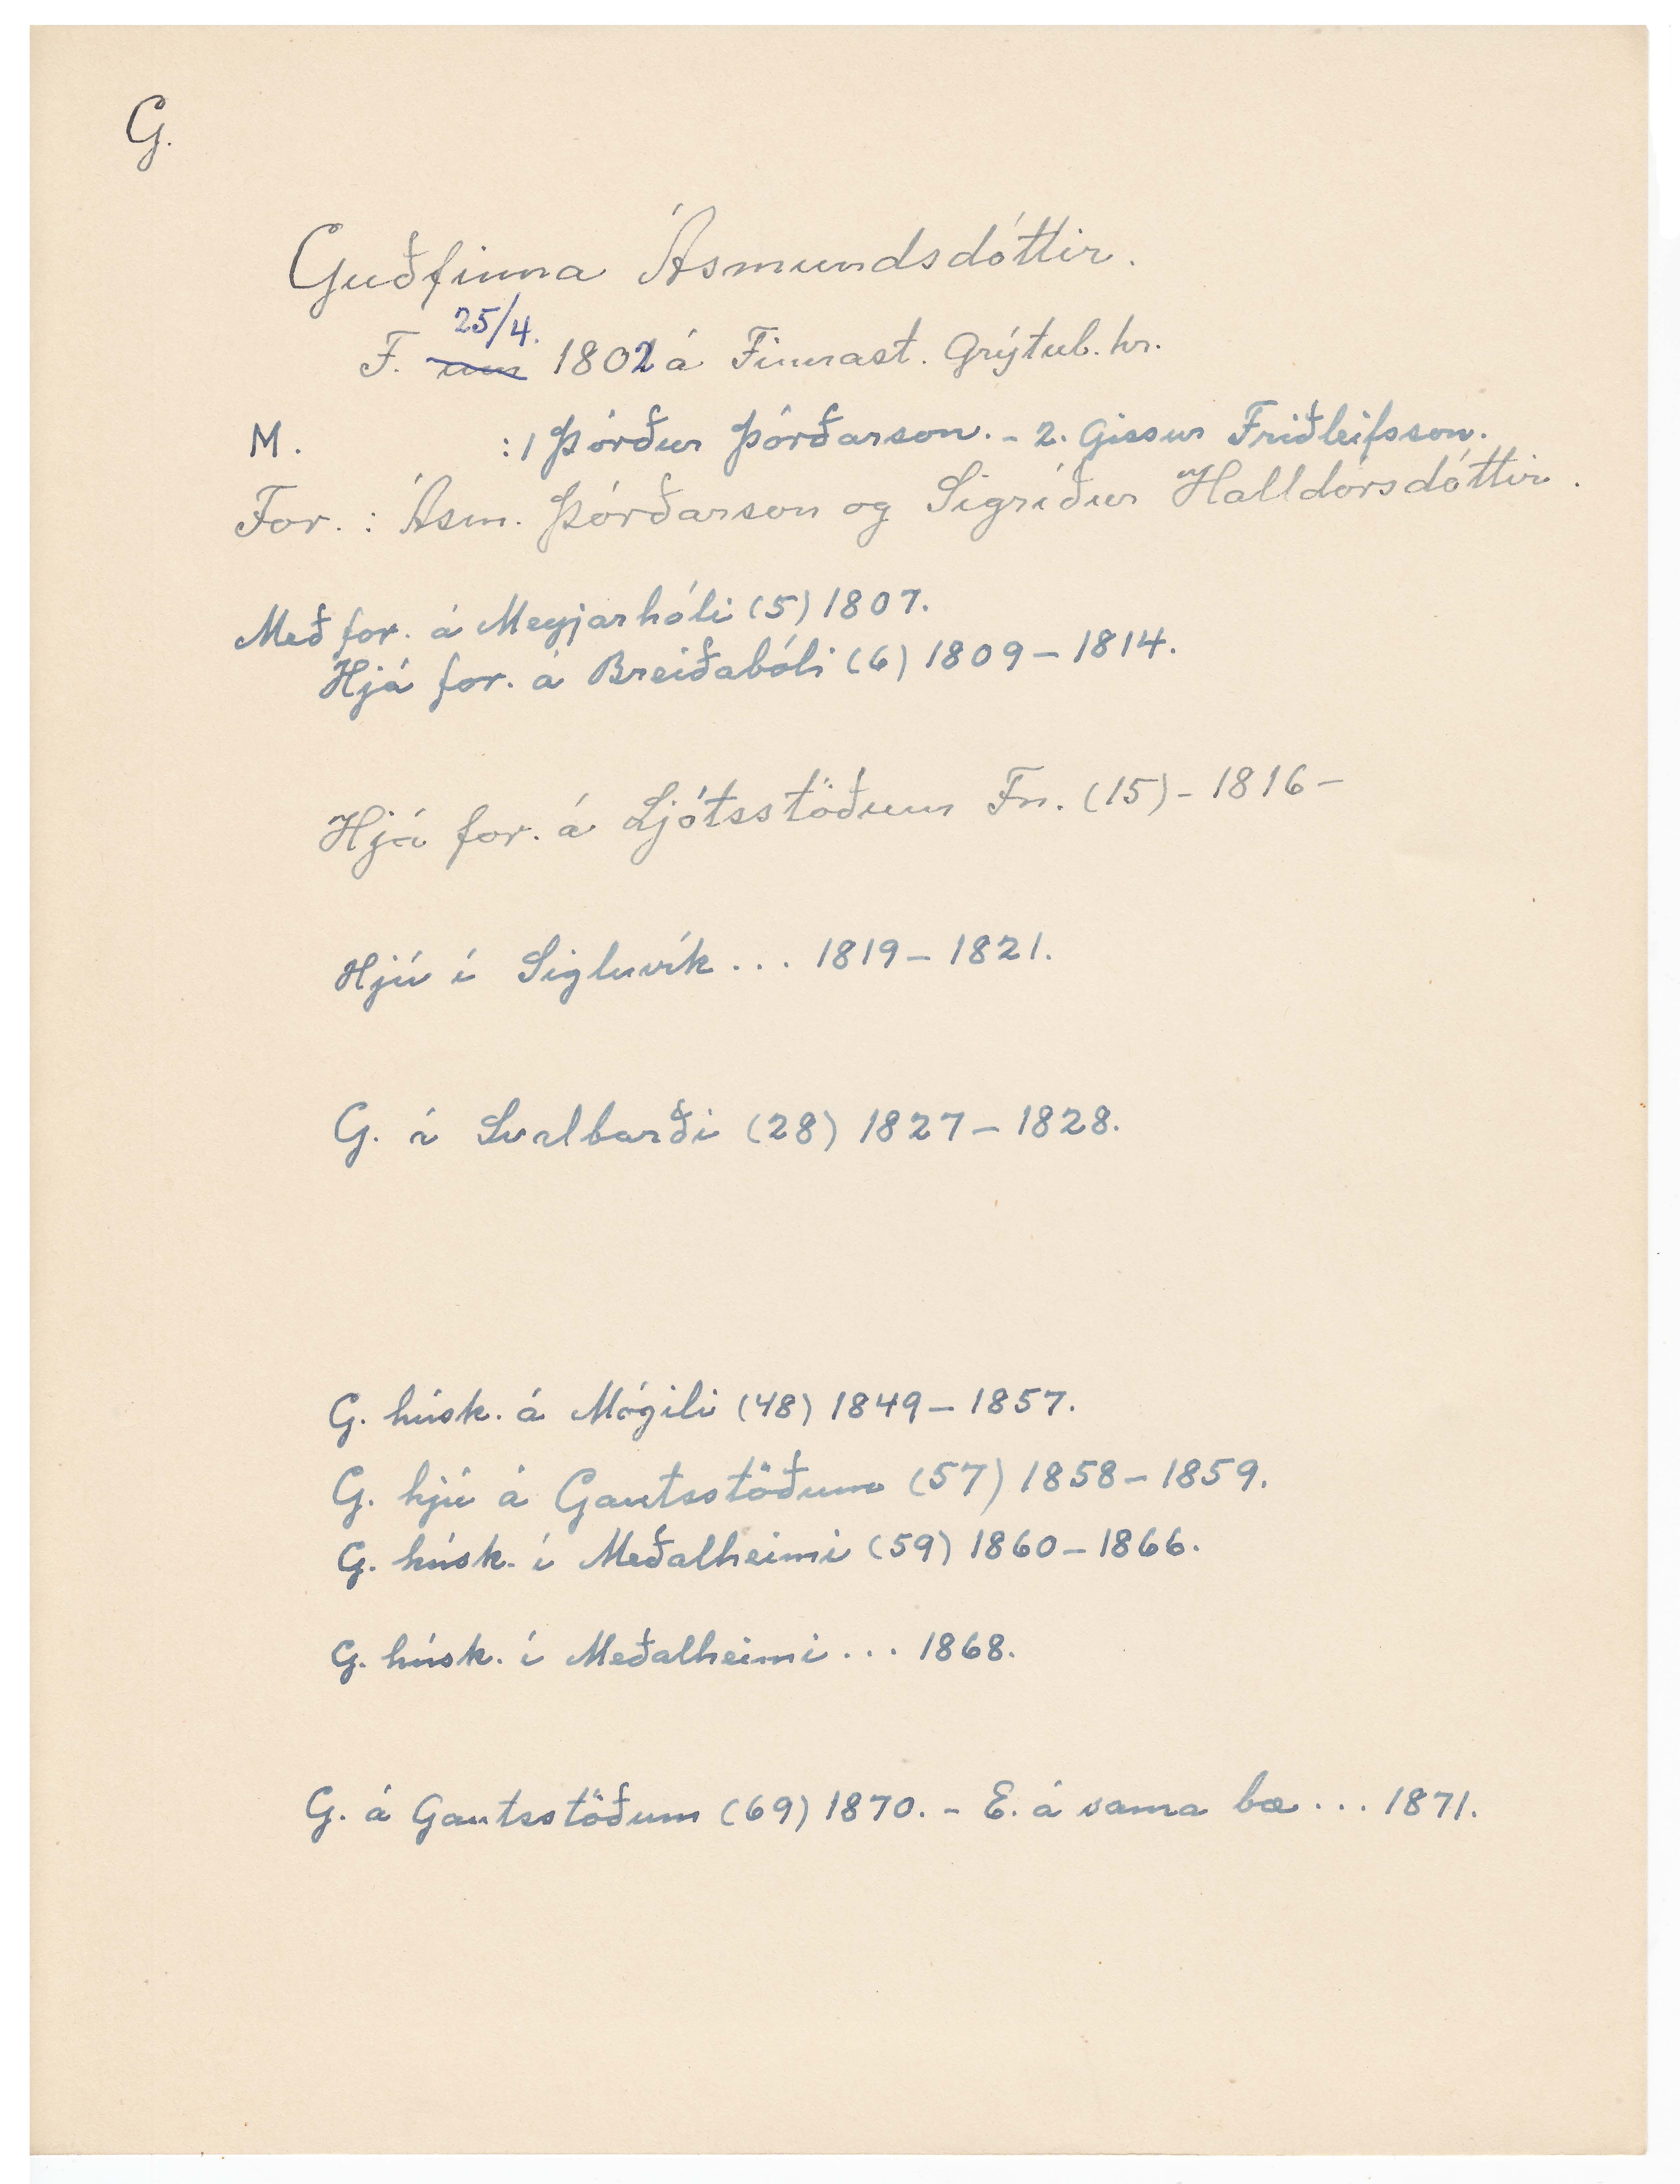 G.
Guðfinna Ásmundsdóttir.
25/4.
F. um 1802 á Finnast. Grýtub. hr.
M. : 1 Þórður Þórðarson. - 2. Gissur Friðleifsson.
For. : Ásm. Þórðarson og Sigríður Halldórsdóttir.
Með for. á Meyjarhóli (5) 1807.
Hjá for. á Breiðabóli (6) 1809 - 1814.
Hjá for. á Ljótsstöðum Fn. (15) - 1816 -
Hjú í Sigluvík ... 1819 - 1821.
G. á Svalbarði (28) 1827 - 1828.
G. húsk. á Mógili (48) 1849 - 1857.
G. hjú á Gautsstöðum (57) 1858 - 1859.
G. húsk. í Meðalheimi (59) 1860 - 1866.
G. húsk. í Meðalheimi ... 1868.
G. á Gautsstöðum (69) 1870. - E. á sama bæ ... 1871.